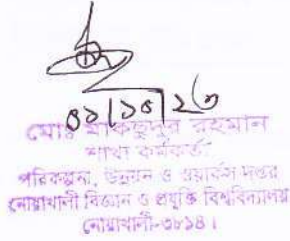 ০১|১০|২৩
মোঃ মাকছুদুর রহমান
শাখা কর্মকর্তা
পরিকল্পনা, উন্নয়ন ও ওয়ার্কস দপ্তর
নোয়াখালী বিজ্ঞান ও প্রযুক্তি বিশ্ববিদ্যালয়
নোয়াখালী-৩৮১৪।